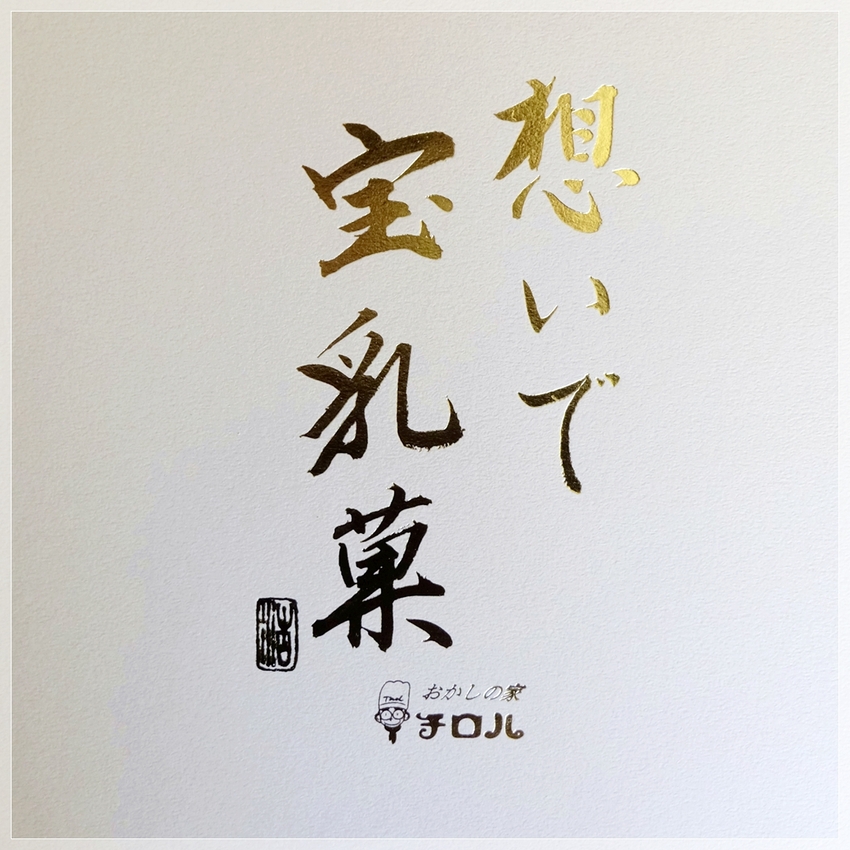 想いで
宝乳菓
おかしの家
チロル